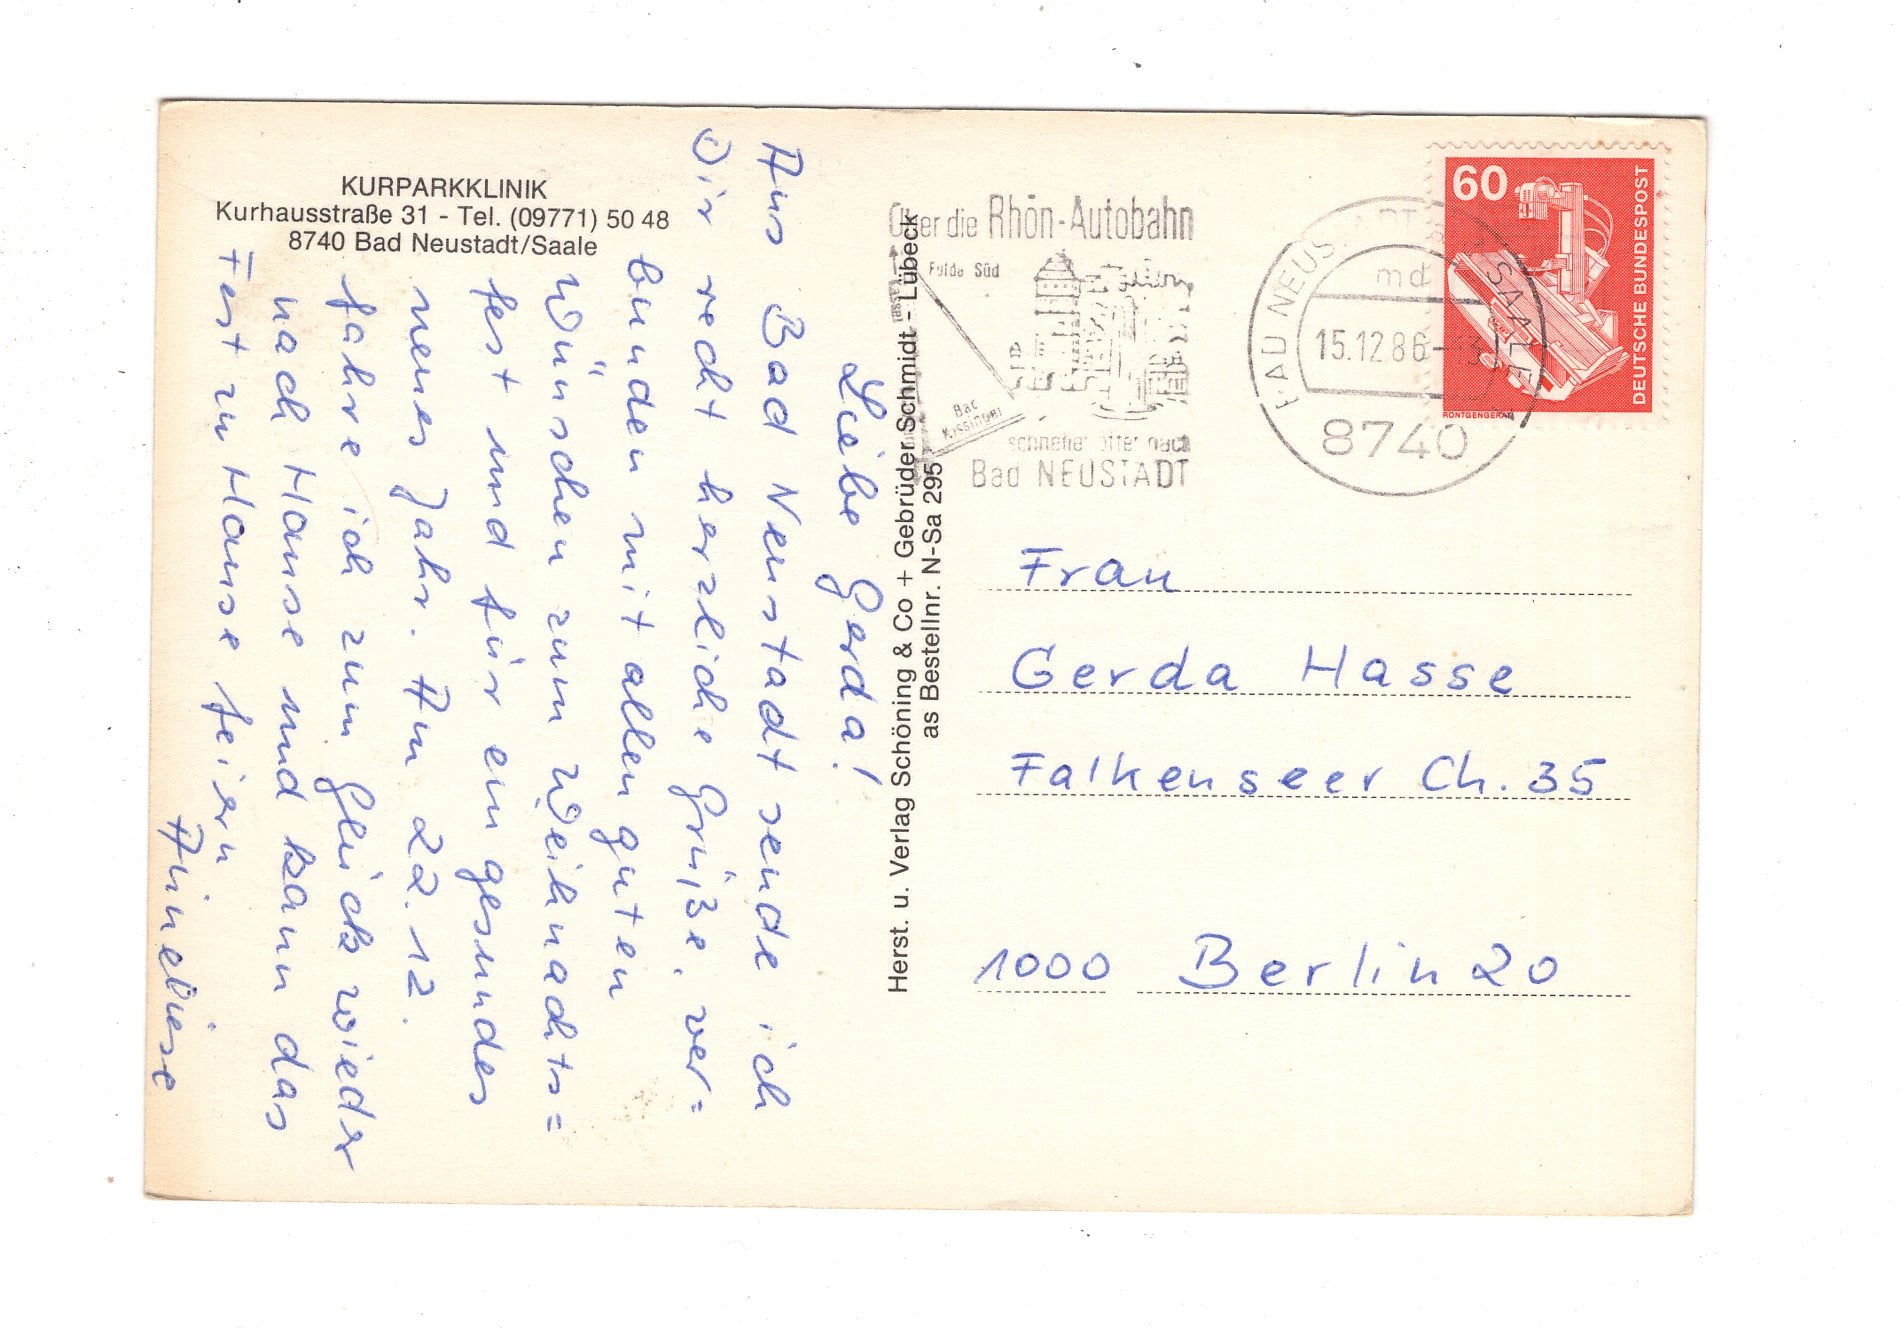 KURPARKKLINIK
Kurhausstraße 31 - Tel. (09771) 50 48
8740 Bad Neustadt/Saale
Liebe Gerda!
Aus Bad Neustadt sende ich
Dir recht herzliche Grüße, ver=
bunden mit allen guten
Wünschen zum Weihnachts=
fest und für ein gesundes
neues Jahr. Am 22.12.
fahre ich zum Glück wieder
nach Hause und kann das
Fest zu Hause feiern
Herst. u. Verlag Schöning & Co + Gebrüder Schmidt - Lübeck
as Bestellnr. N-Sa 295
Über die Rhön-Autobahn
Fulda Süd
Kassel
Bad Kissingen
schneller öfter nach
Bad NEUSTADT
BAD NEUSTADT SAALE
md
15.12.86
8740
60
DEUTSCHE BUNDESPOST
RÖNTGENGERÄT
Frau
Gerda Hasse
Falkenseer Ch. 35
1000 Berlin 20